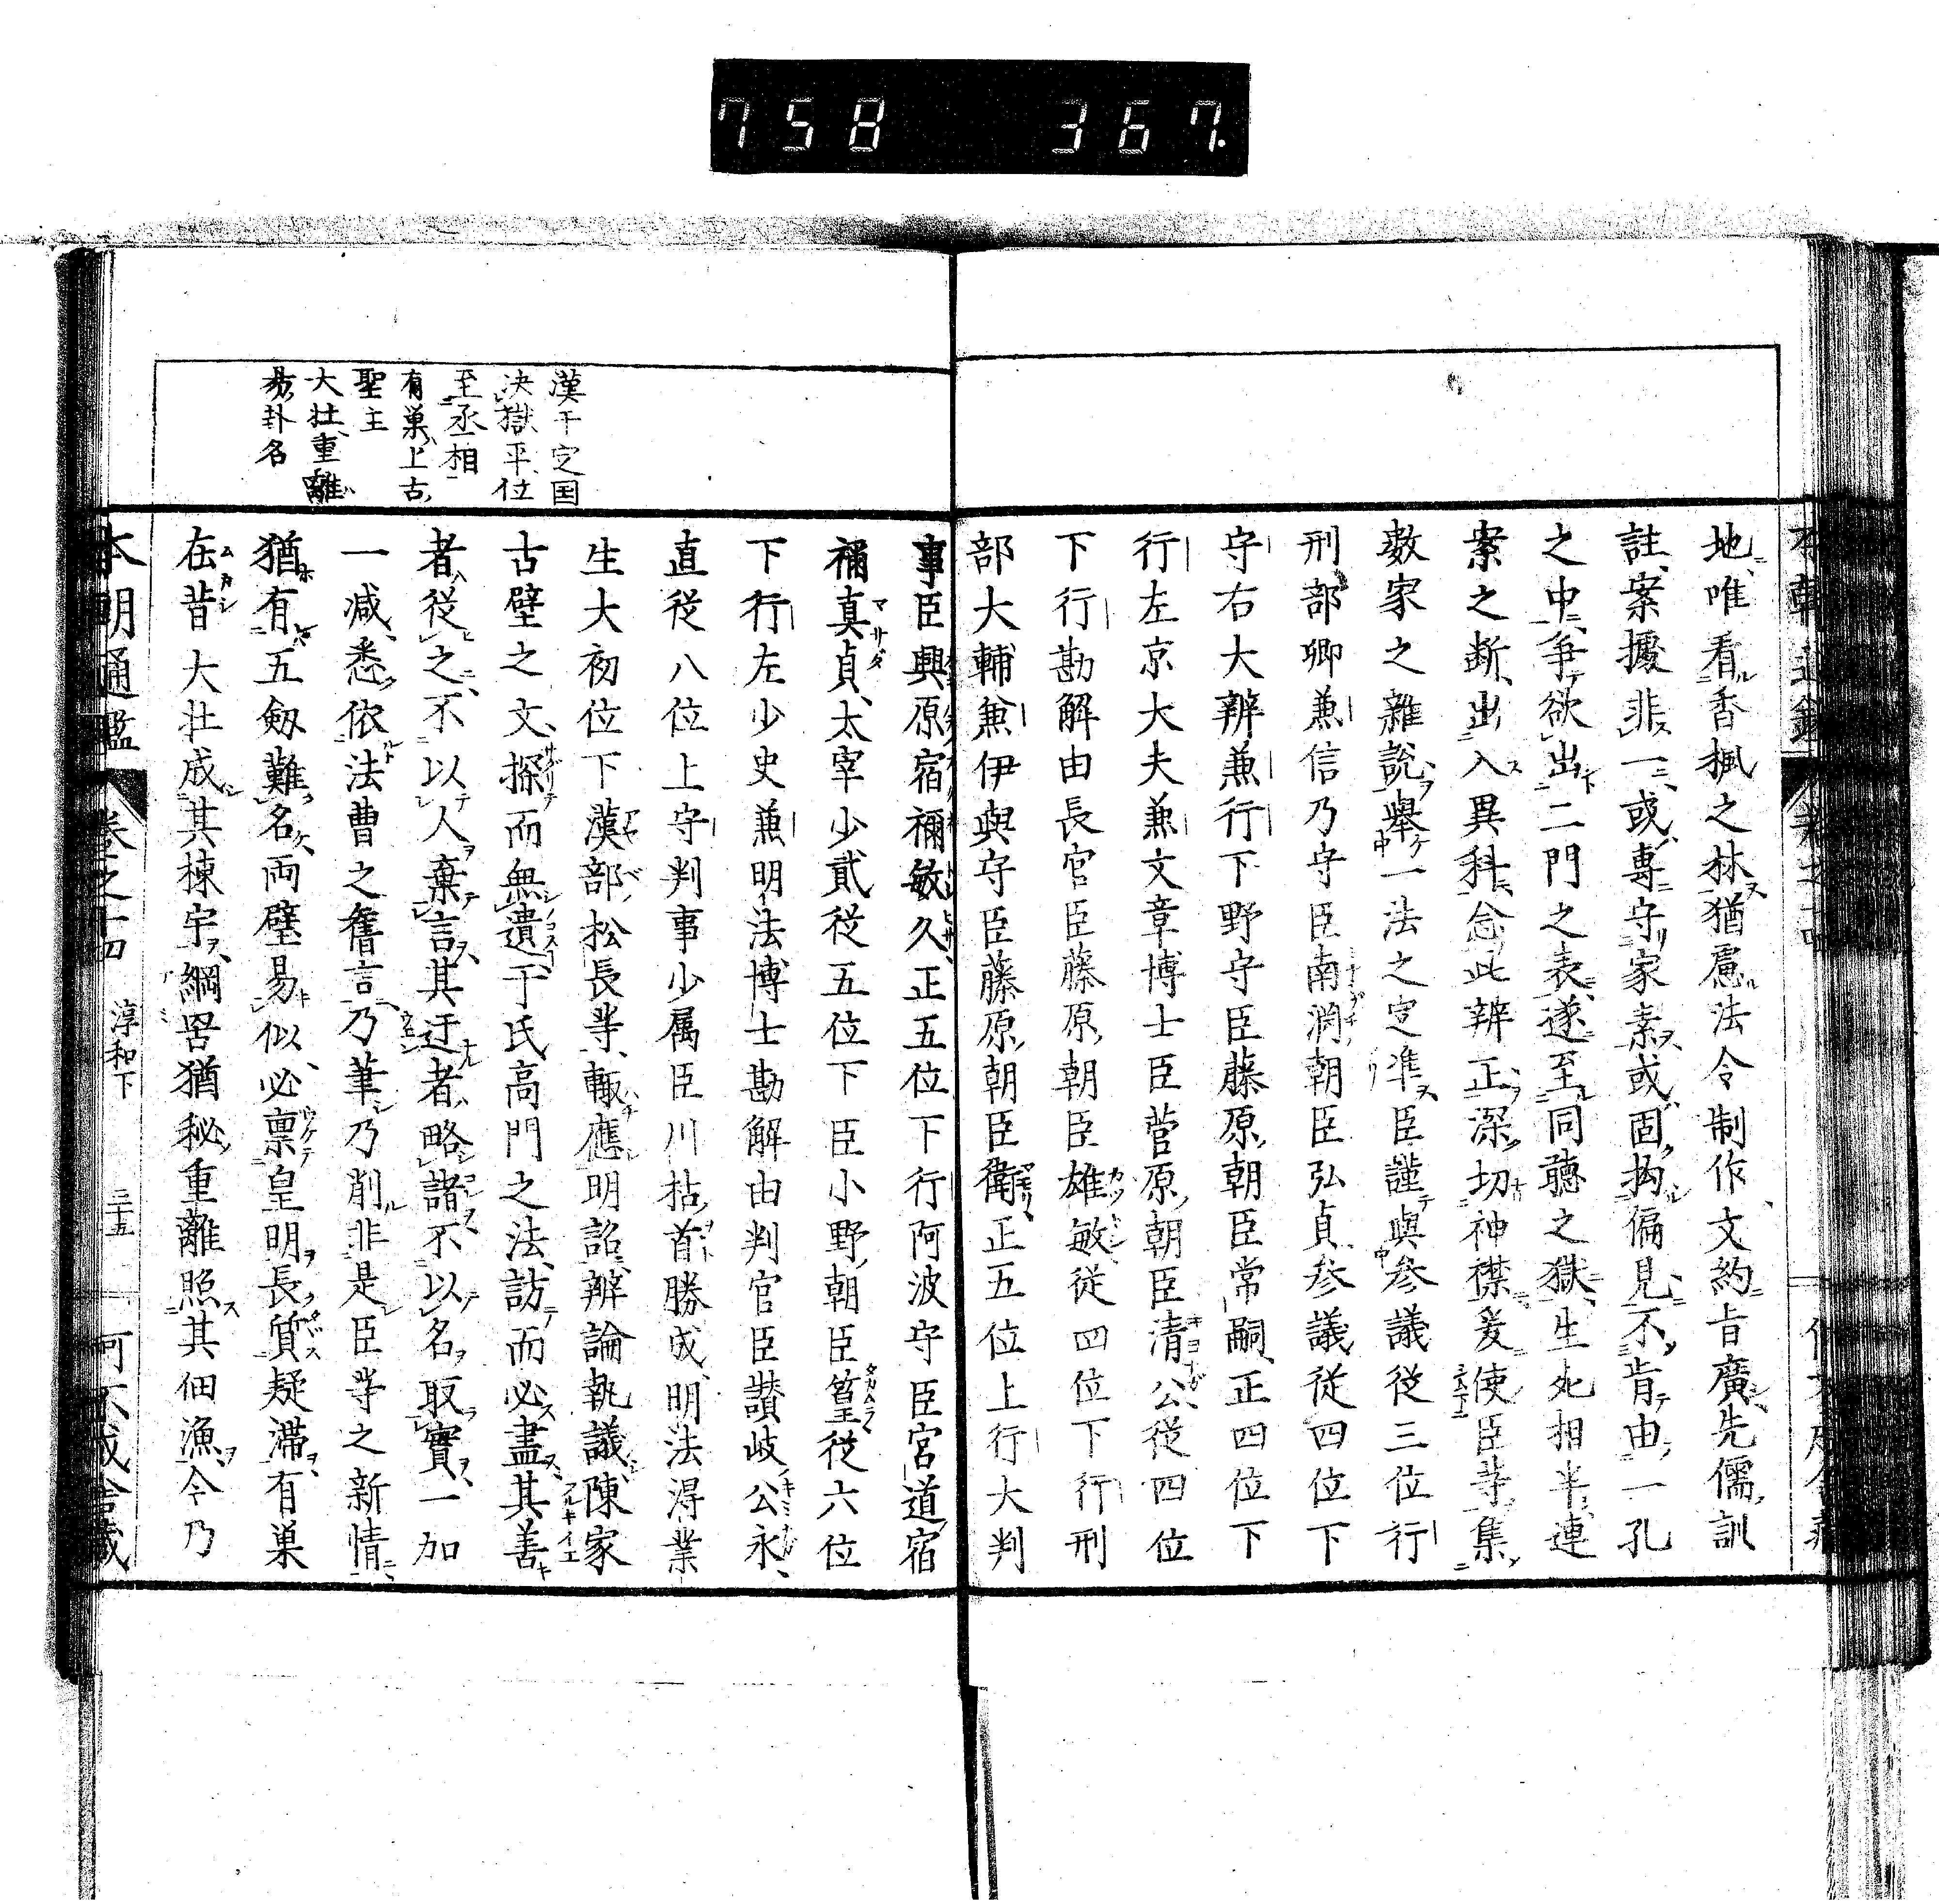 758 367.
地唯看香楓之林猶慮法令制作文約旨廣先儒訓
註案擾非一或專守家素或固拘偏見不肯由一孔
之中爭欲出二門之表遂至同聽之獄生死相半連
案之斷出入異科念此辨正深切神襟爰使臣等集
數家之雜說舉一法之定準臣謹與参議從三位行
刑部卿兼信乃守臣南渕朝臣弘貞参議從四位下
守右大辨兼行下野守臣藤原朝臣常嗣正四位下
行左京大夫兼文章博士臣菅原朝臣清公從四位
下行勘解由長官臣藤原朝臣雄敏從四位下行刑
部大輔兼伊與守臣藤原朝臣衛正五位上行大判
漢于定国
決獄平位
至丞相
有巢上古
聖主
大壮重離
易卦名
事臣興原宿禰敏久正五位下行阿波守臣宮道宿
禰真貞太宰少貳從五位下臣小野朝臣篁從六位
下行左少史兼明法博士勘解由判官臣讃岐公永
直從八位上守判事少属臣川枯首勝成明法得業
生大初位下漢部松長等輙應明詔辨論執議陳家
古壁之文探而無遺于氏高門之法訪而必盡其善
者從之不以人棄言其迂者略諸不以名取實一加
一減悉依法曹之舊言乃筆乃削非是臣等之新情
猶有五劔難名両璧易似必禀皇明長質疑滞有巢
在昔大壮成其棟宇綱罟猶秘重離照其佃漁今乃
本朝通鑑 卷之十四 淳和下 三十五